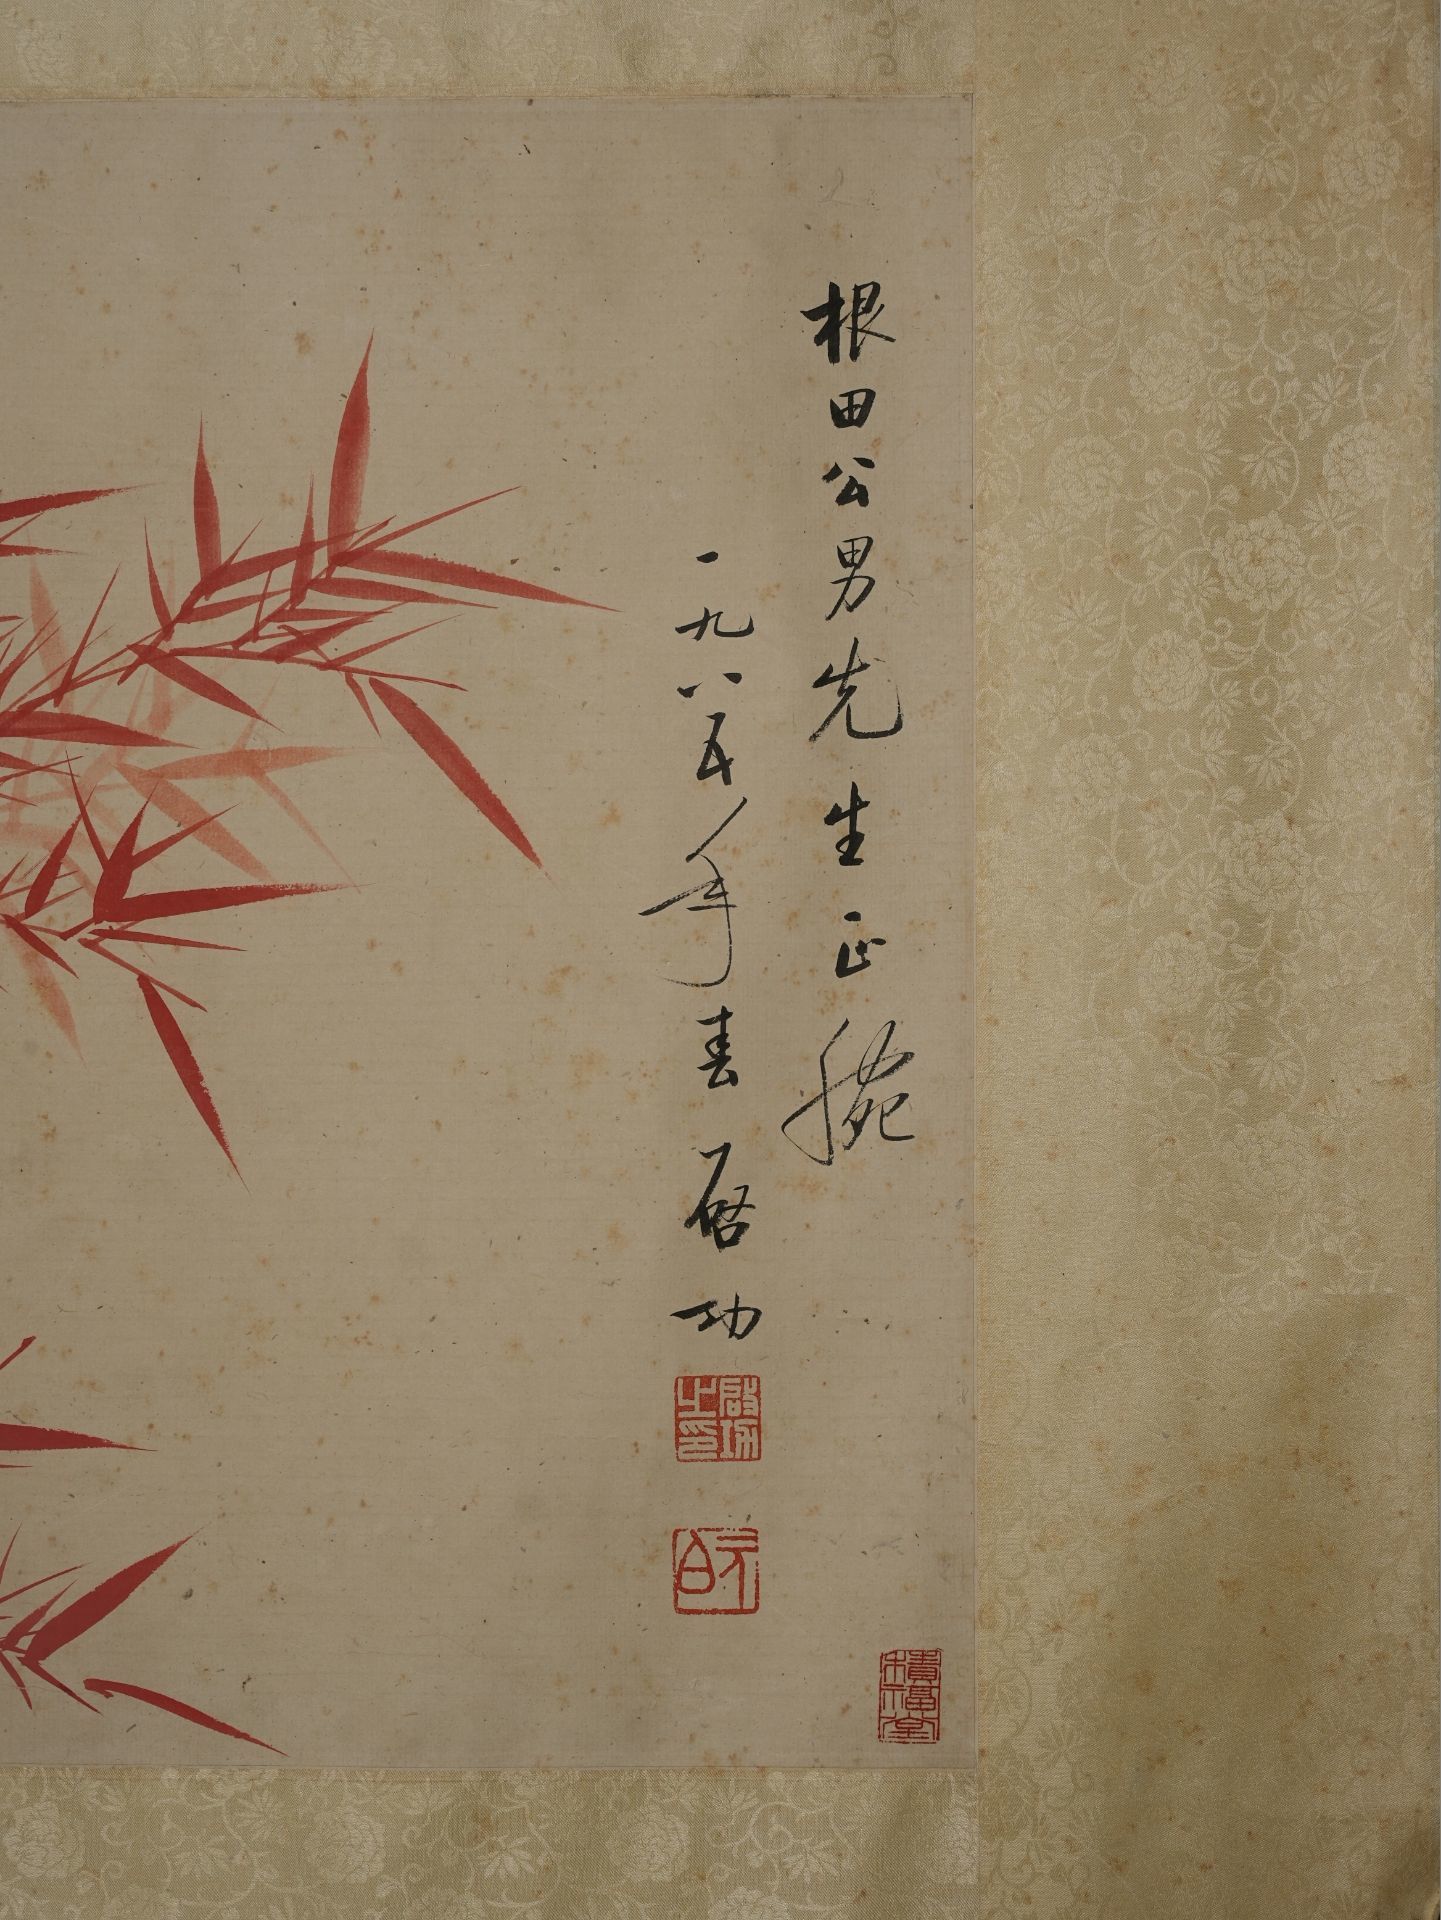 根田公男先生正腕
一九八五年春 啓功
啓功之印
元白
積福堂